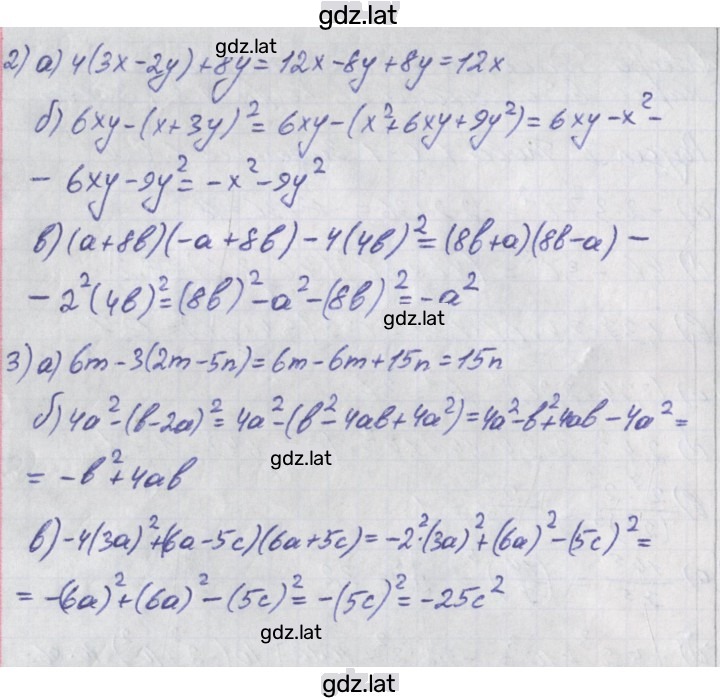 gdz.lat
gdz.lat
2) а) 4(3x-2y)+8y=12x-8y+8y=12x
б) 6xy-(x+3y)²=6xy-(x²+6xy+9y²)=6xy-x²-
- 6xy-9y²=-x²-9y²
в) (a+8b)(-a+8b)-4(4b)²=(8b+a)(8b-a)-
- 2²(4b)²=(8b)²-a²-(8b)²=-a²
gdz.lat
3) а) 6m-3(2m-5n)=6m-6m+15n=15n
б) 4a²-(b-2a)²=4a²-(b²-4ab+4a²)=4a²-b²+4ab-4a²=
= -b²+4ab
gdz.lat
в) -4(3a)²+(6a-5c)(6a+5c)=-2²·(3a)²+(6a)²-(5c)²=
= -(6a)²+(6a)²-(5c)²=-(5c)²=-25c²
gdz.lat
gdz.lat